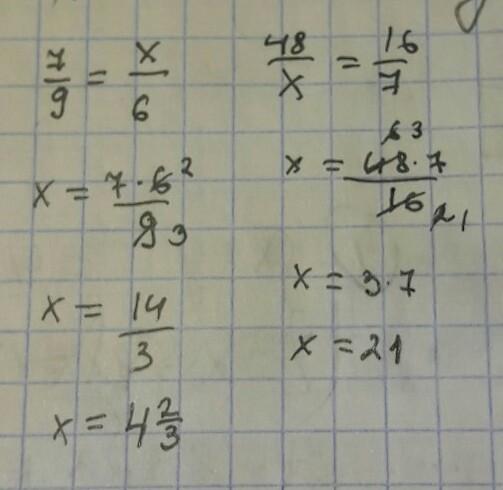 7/9 = x/6
x = 7·6 2/9 3
x = 14/3
x = 4 2/3
48/x = 16/7
x = 6 3 48·7/16 2 1
x = 3·7
x = 21